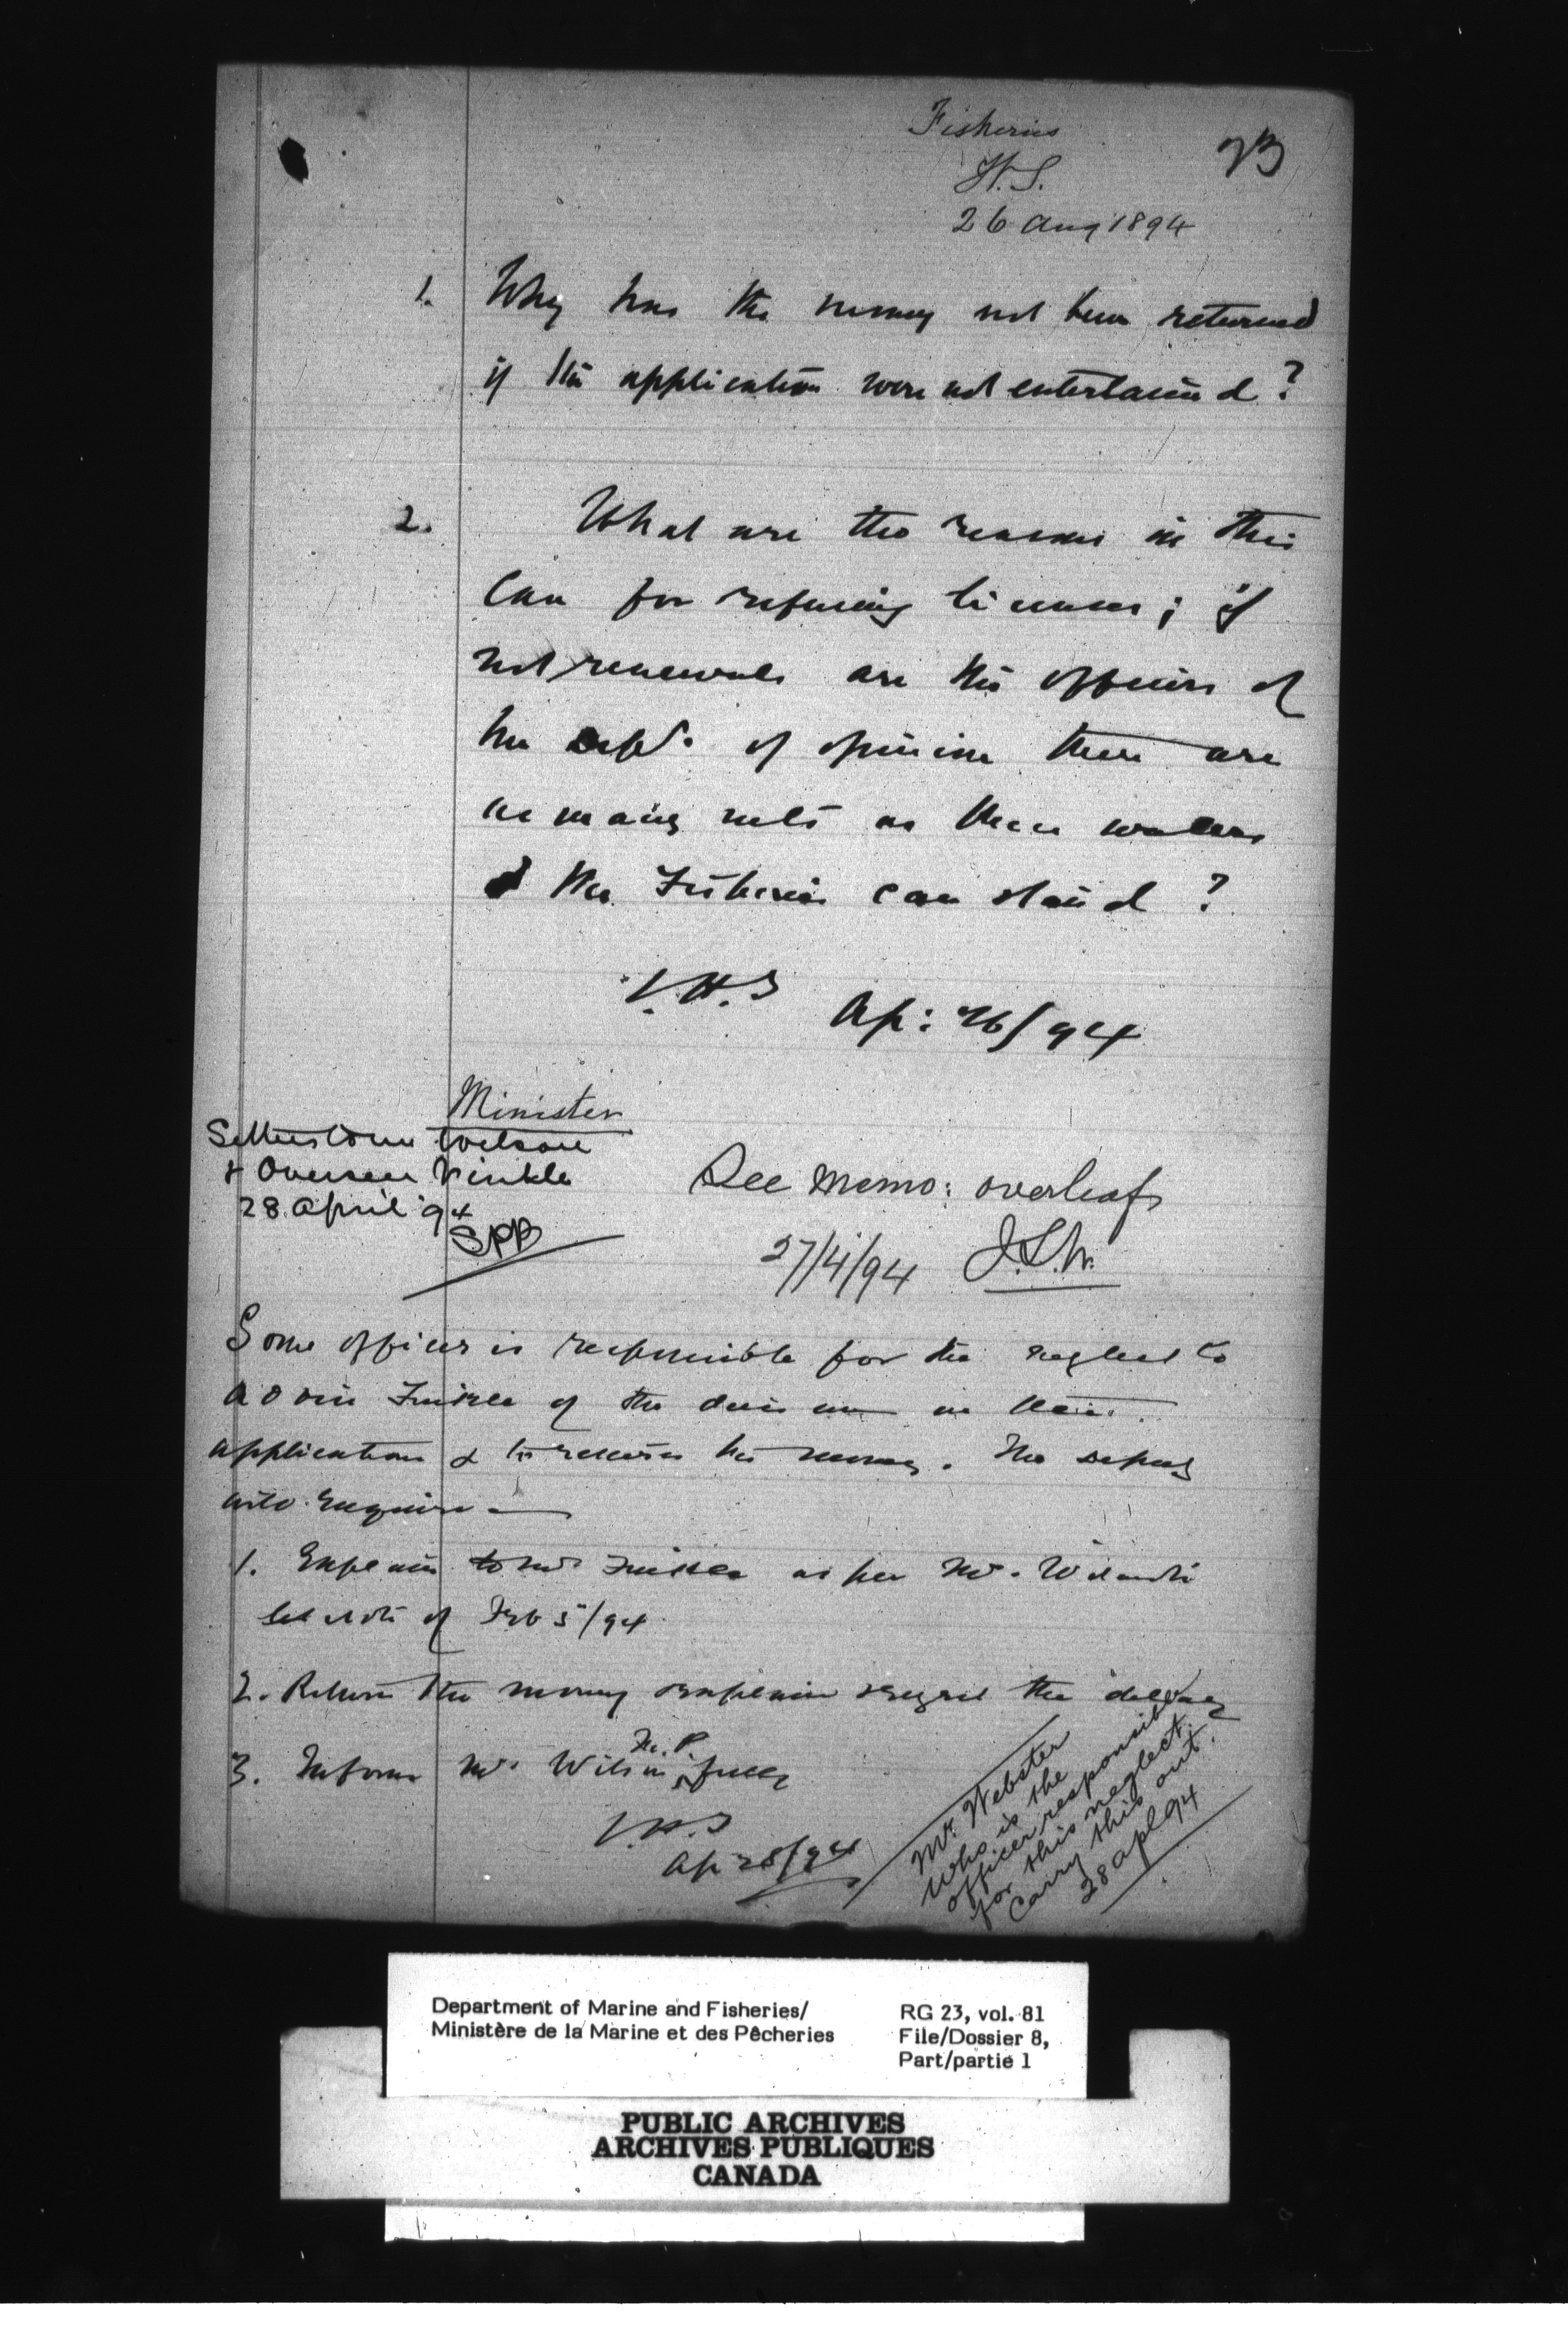 Fisheries
73
H.S.
26 Aug 1894
1. Why has the money not been returned
if the application were not entertained?
2. What are the reasons in this
case for refusing licenses; if
not renewals are the officers of
the Dept. of opinion there are
as many nets as these waters
& the Fisheries can stand?
C.H.T
Ap: 26/94
Minister
Wilson
& Overseer Kinkle
28 April '94
SPB
See memo: overleaf
27/4/94 J.S.W.
Some officer is responsible for the neglect to
advise of the decision on their
application & to return the money. The Deputy
will enquire
1. Explain to Mr as per Mr.
of Feb 5/94
2. Return the money explain & regret the delay
3. Inform Mr. Wilson M.P. fully
C.H.T
Ap 28/94
Mr. Webster
Who is the
officer responsible
for this neglect.
Carry this out.
28 Apl 94
Department of Marine and Fisheries/
Ministère de la Marine et des Pêcheries
RG 23, vol. 81
File/Dossier 8,
Part/partie 1
PUBLIC ARCHIVES
ARCHIVES PUBLIQUES
CANADA